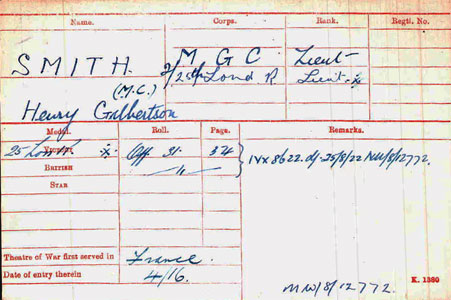 Name. Corps. Rank. Regtl. No.
SMITH. M G C Lieut
(M.C.) 2/25th Lond R Lieut. x
Henry Gilbertson
Medal. Roll. Page. Remarks.
Victory x Off. 31. 324 } IVx 8622. d/- 25/8/22 NW/8/12772.
25 Lon R.
British — " —
Star
Theatre of War first served in France.
Date of entry therein 4/16.
K. 1380
MW/8/12772.